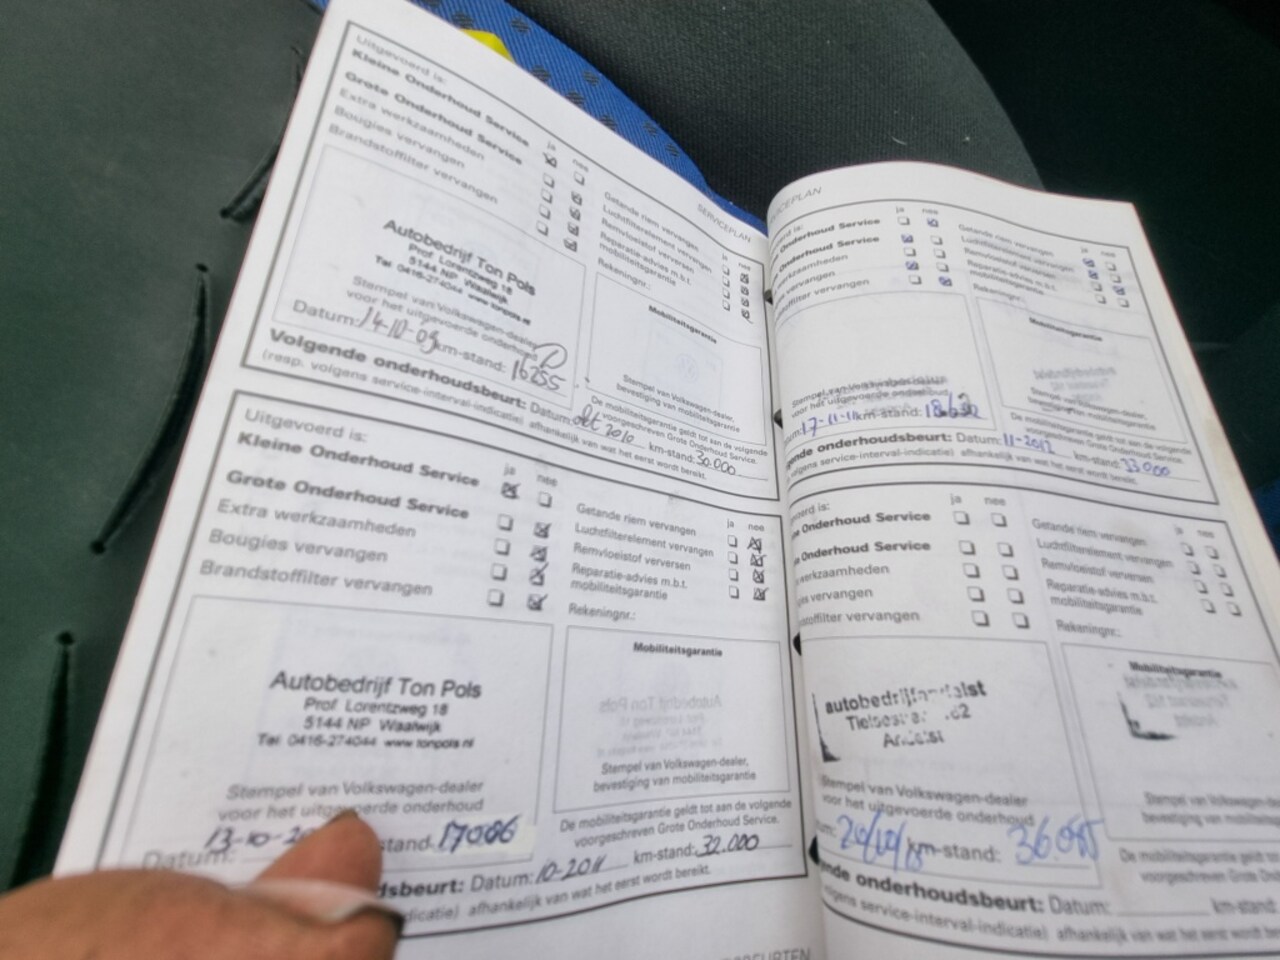 SERVICEPLAN
Uitgevoerd is:
ja nee
Kleine Onderhoud Service
Grote Onderhoud Service
Extra werkzaamheden
Bougies vervangen
Brandstoffilter vervangen
ja nee
Getande riem vervangen
Luchtfilterelement vervangen
Remvloeistof verversen
Reparatie-advies m.b.t.
mobiliteitsgarantie
Rekeningnr.:
Autobedrijf Ton Pols
Prof. Lorentzweg 18
5144 NP Waalwijk
Tel. 0416-274044 www.tonpols.nl
Stempel van Volkswagen-dealer
voor het uitgevoerde onderhoud
Datum: 14-10-09 km-stand: 16255
Mobiliteitsgarantie
Stempel van Volkswagen-dealer,
bevestiging van mobiliteitsgarantie
De mobiliteitsgarantie geldt tot aan de volgende
voorgeschreven Grote Onderhoud Service.
Volgende onderhoudsbeurt: Datum: okt 2010 km-stand: 30.000
(resp. volgens service-interval-indicatie) afhankelijk van wat het eerst wordt bereikt.
Uitgevoerd is:
ja nee
Kleine Onderhoud Service
Grote Onderhoud Service
Extra werkzaamheden
Bougies vervangen
Brandstoffilter vervangen
ja nee
Getande riem vervangen
Luchtfilterelement vervangen
Remvloeistof verversen
Reparatie-advies m.b.t.
mobiliteitsgarantie
Rekeningnr.:
Autobedrijf Ton Pols
Prof. Lorentzweg 18
5144 NP Waalwijk
Tel. 0416-274044 www.tonpols.nl
Stempel van Volkswagen-dealer
voor het uitgevoerde onderhoud
Datum: 13-10-20 stand: 17086
Mobiliteitsgarantie
Stempel van Volkswagen-dealer,
bevestiging van mobiliteitsgarantie
De mobiliteitsgarantie geldt tot aan de volgende
voorgeschreven Grote Onderhoud Service.
dsbeurt: Datum: 10-2011 km-stand: 32.000
dicatie) afhankelijk van wat het eerst wordt bereikt.
VICEPLAN
erd is:
ja nee
Onderhoud Service
Onderhoud Service
werkzaamheden
vervangen
stoffilter vervangen
ja nee
Getande riem vervangen
Luchtfilterelement vervangen
Remvloeistof verversen
Reparatie-advies m.b.t.
mobiliteitsgarantie
Rekeningnr.:
Stempel van Volkswagen-dealer
voor het uitgevoerde onderhoud
um: 17-11-11 km-stand:
Mobiliteitsgarantie
Stempel van Volkswagen-dealer,
bevestiging van mobiliteitsgarantie
De mobiliteitsgarantie geldt tot aan de volgende
voorgeschreven Grote Onderhoud Service.
gende onderhoudsbeurt: Datum: 11-2012 km-stand: 33.000
volgens service-interval-indicatie) afhankelijk van wat het eerst wordt bereikt.
voerd is:
ja nee
ne Onderhoud Service
e Onderhoud Service
werkzaamheden
ies vervangen
stoffilter vervangen
ja nee
Getande riem vervangen
Luchtfilterelement vervangen
Remvloeistof verversen
Reparatie-advies m.b.t.
mobiliteitsgarantie
Rekeningnr.:
autobedrijf
Andelst
Stempel van Volkswagen-dealer
voor het uitgevoerde onderhoud
um: km-stand:
Mobiliteitsgarantie
Stempel van Volkswagen-dealer
bevestiging van mobiliteitsgarantie
De mobiliteitsgarantie geldt tot
voorgeschreven Grote Onder
ende onderhoudsbeurt: Datum: km-stand:
olgens service-interval-indicatie) afhankelijk van wat het eerst wordt be